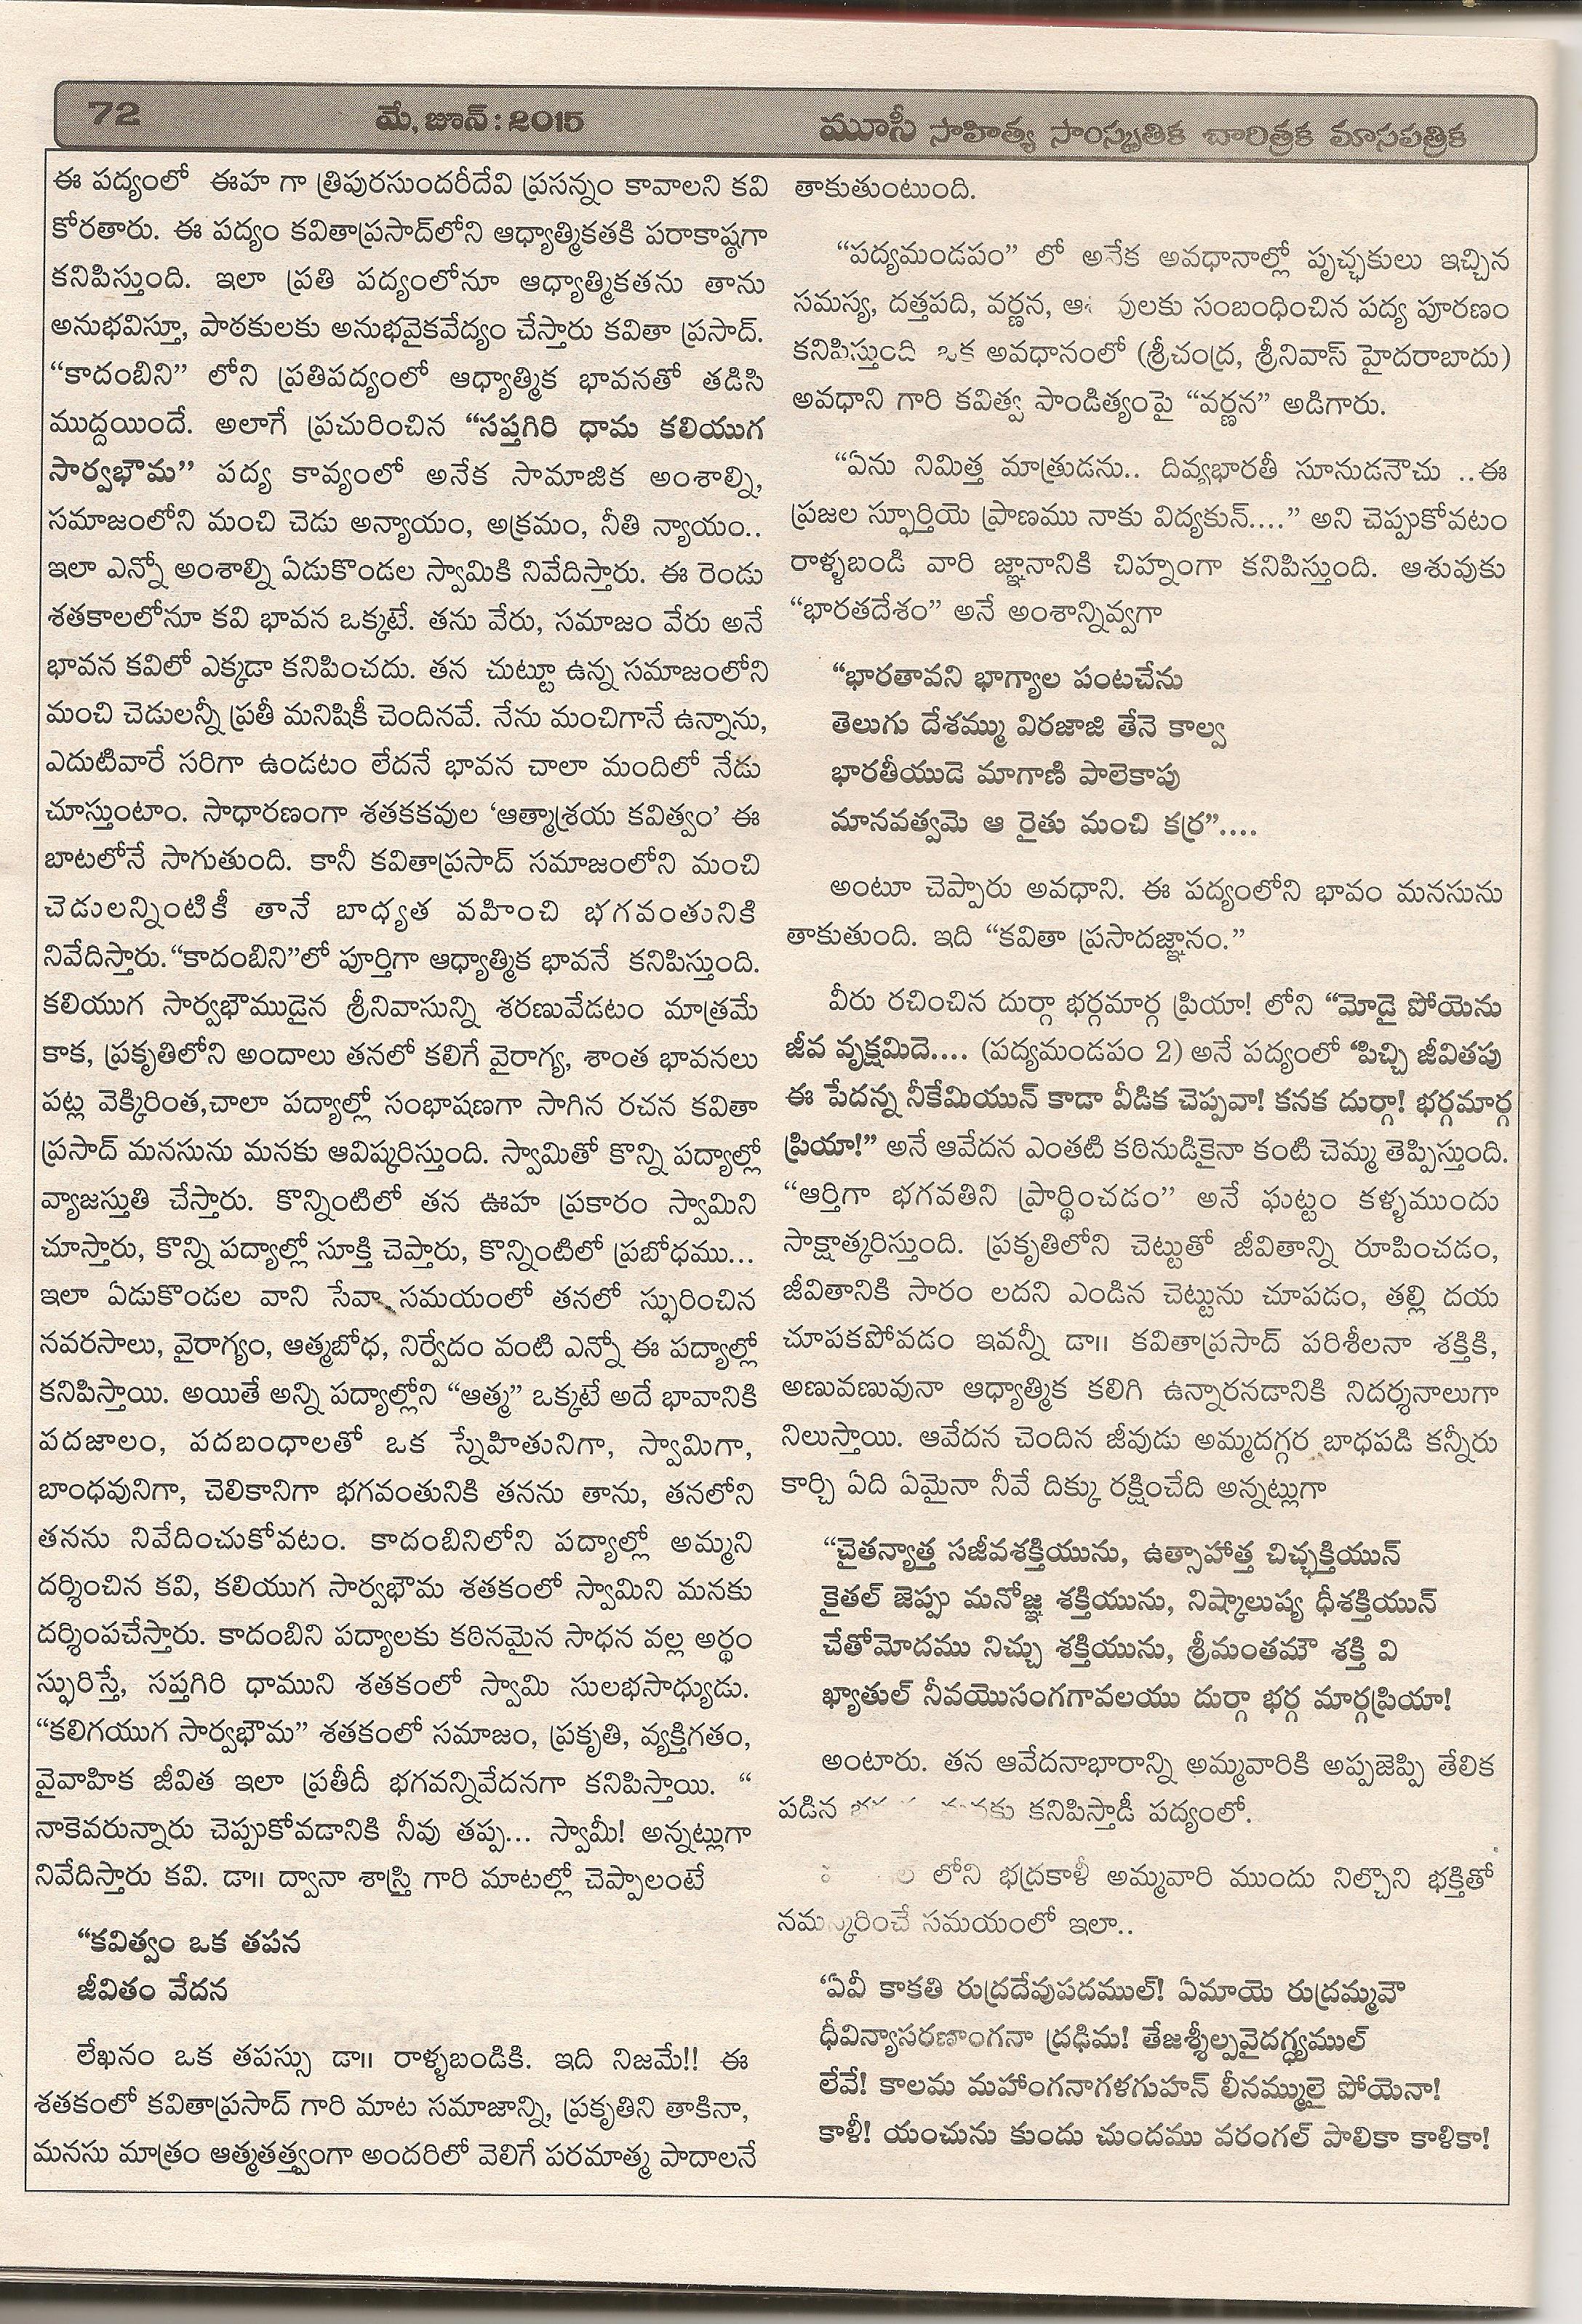 72
మే, జూన్ : 2015
మూసీ సాహిత్య సాంస్కృతిక చారిత్రక మాసపత్రిక
ఈ పద్యంలో ఈహ గా త్రిపురసుందరీదేవి ప్రసన్నం కావాలని కవి
కోరతారు. ఈ పద్యం కవితాప్రసాద్‌లోని ఆధ్యాత్మికతకి పరాకాష్ఠగా
కనిపిస్తుంది. ఇలా ప్రతి పద్యంలోనూ ఆధ్యాత్మికతను తాను
అనుభవిస్తూ, పాఠకులకు అనుభవైకవేద్యం చేస్తారు కవితా ప్రసాద్.
“కాదంబిని” లోని ప్రతిపద్యంలో ఆధ్యాత్మిక భావనతో తడిసి
ముద్దయిందే. అలాగే ప్రచురించిన “సప్తగిరి ధామ కలియుగ
సార్వభౌమ” పద్య కావ్యంలో అనేక సామాజిక అంశాల్ని,
సమాజంలోని మంచి చెడు అన్యాయం, అక్రమం, నీతి న్యాయం..
ఇలా ఎన్నో అంశాల్ని ఏడుకొండల స్వామికి నివేదిస్తారు. ఈ రెండు
శతకాలలోనూ కవి భావన ఒక్కటే. తను వేరు, సమాజం వేరు అనే
భావన కవిలో ఎక్కడా కనిపించదు. తన చుట్టూ ఉన్న సమాజంలోని
మంచి చెడులన్నీ ప్రతీ మనిషికీ చెందినవే. నేను మంచిగానే ఉన్నాను,
ఎదుటివారే సరిగా ఉండటం లేదనే భావన చాలా మందిలో నేడు
చూస్తుంటాం. సాధారణంగా శతకకవుల ‘ఆత్మాశ్రయ కవిత్వం’ ఈ
బాటలోనే సాగుతుంది. కానీ కవితాప్రసాద్ సమాజంలోని మంచి
చెడులన్నింటికీ తానే బాధ్యత వహించి భగవంతునికి
నివేదిస్తారు. “కాదంబిని”లో పూర్తిగా ఆధ్యాత్మిక భావనే కనిపిస్తుంది.
కలియుగ సార్వభౌముడైన శ్రీనివాసున్ని శరణువేడటం మాత్రమే
కాక, ప్రకృతిలోని అందాలు తనలో కలిగే వైరాగ్య, శాంత భావనలు
పట్ల వెక్కిరింత,చాలా పద్యాల్లో సంభాషణగా సాగిన రచన కవితా
ప్రసాద్ మనసును మనకు ఆవిష్కరిస్తుంది. స్వామితో కొన్ని పద్యాల్లో
వ్యాజస్తుతి చేస్తారు. కొన్నింటిలో తన ఊహ ప్రకారం స్వామిని
చూస్తారు, కొన్ని పద్యాల్లో సూక్తి చెప్తారు, కొన్నింటిలో ప్రబోధము...
ఇలా ఏడుకొండల వాని సేవా సమయంలో తనలో స్ఫురించిన
నవరసాలు, వైరాగ్యం, ఆత్మబోధ, నిర్వేదం వంటి ఎన్నో ఈ పద్యాల్లో
కనిపిస్తాయి. అయితే అన్ని పద్యాల్లోని “ఆత్మ” ఒక్కటే అదే భావానికి
పదజాలం, పదబంధాలతో ఒక స్నేహితునిగా, స్వామిగా,
బాంధవునిగా, చెలికానిగా భగవంతునికి తనను తాను, తనలోని
తనను నివేదించుకోవటం. కాదంబినిలోని పద్యాల్లో అమ్మని
దర్శించిన కవి, కలియుగ సార్వభౌమ శతకంలో స్వామిని మనకు
దర్శింపచేస్తారు. కాదంబిని పద్యాలకు కఠినమైన సాధన వల్ల అర్థం
స్ఫురిస్తే, సప్తగిరి ధాముని శతకంలో స్వామి సులభసాధ్యుడు.
“కలిగయుగ సార్వభౌమ” శతకంలో సమాజం, ప్రకృతి, వ్యక్తిగతం,
వైవాహిక జీవిత ఇలా ప్రతీదీ భగవన్నివేదనగా కనిపిస్తాయి. “
నాకెవరున్నారు చెప్పుకోవడానికి నీవు తప్ప... స్వామీ! అన్నట్లుగా
నివేదిస్తారు కవి. డా॥ ద్వానా శాస్త్రి గారి మాటల్లో చెప్పాలంటే
“కవిత్వం ఒక తపన
జీవితం వేదన
లేఖనం ఒక తపస్సు డా॥ రాళ్ళబండికి. ఇది నిజమే!! ఈ
శతకంలో కవితాప్రసాద్ గారి మాట సమాజాన్ని, ప్రకృతిని తాకినా,
మనసు మాత్రం ఆత్మతత్త్వంగా అందరిలో వెలిగే పరమాత్మ పాదాలనే
తాకుతుంటుంది.
“పద్యమండపం” లో అనేక అవధానాల్లో పృచ్ఛకులు ఇచ్చిన
సమస్య, దత్తపది, వర్ణన, సంబంధించిన పద్య పూరణం
కనిపిస్తుంది ఒక అవధానంలో (శ్రీచంద్ర, శ్రీనివాస్ హైదరాబాదు)
అవధాని గారి కవిత్వ పాండిత్యంపై “వర్ణన” అడిగారు.
“ఏను నిమిత్త మాత్రుడను.. దివ్యభారతీ సూనుడనౌచు ..ఈ
ప్రజల స్ఫూర్తియె ప్రాణము నాకు విద్యకున్....” అని చెప్పుకోవటం
రాళ్ళబండి వారి జ్ఞానానికి చిహ్నంగా కనిపిస్తుంది. ఆశువుకు
“భారతదేశం” అనే అంశాన్నివ్వగా
“భారతావని భాగ్యాల పంటచేను
తెలుగు దేశమ్ము విరజాజి తేనె కాల్వ
భారతీయుడె మాగాణి పాలెకాపు
మానవత్వమె ఆ రైతు మంచి కర్ర”....
అంటూ చెప్పారు అవధాని. ఈ పద్యంలోని భావం మనసును
తాకుతుంది. ఇది “కవితా ప్రసాదజ్ఞానం.”
వీరు రచించిన దుర్గా భర్గమార్గ ప్రియా! లోని “మోడై పోయెను
జీవ వృక్షమిదె.... (పద్యమండపం 2) అనే పద్యంలో ‘పిచ్చి జీవితపు
ఈ పేదన్న నీకేమియున్ కాడా వీడిక చెప్పవా! కనక దుర్గా! భర్గమార్గ
ప్రియా!” అనే ఆవేదన ఎంతటి కఠినుడికైనా కంటి చెమ్మ తెప్పిస్తుంది.
“ఆర్తిగా భగవతిని ప్రార్థించడం” అనే ఘట్టం కళ్ళముందు
సాక్షాత్కరిస్తుంది. ప్రకృతిలోని చెట్టుతో జీవితాన్ని రూపించడం,
జీవితానికి సారం లదని ఎండిన చెట్టును చూపడం, తల్లి దయ
చూపకపోవడం ఇవన్నీ డా॥ కవితాప్రసాద్ పరిశీలనా శక్తికి,
అణువణువునా ఆధ్యాత్మిక కలిగి ఉన్నారనడానికి నిదర్శనాలుగా
నిలుస్తాయి. ఆవేదన చెందిన జీవుడు అమ్మదగ్గర బాధపడి కన్నీరు
కార్చి ఏది ఏమైనా నీవే దిక్కు రక్షించేది అన్నట్లుగా
“చైతన్యాత్త సజీవశక్తియును, ఉత్సాహాత్త చిచ్ఛక్తియున్
కైతల్ జెప్పు మనోజ్ఞ శక్తియును, నిష్కాలుష్య ధీశక్తియున్
చేతోమోదము నిచ్చు శక్తియును, శ్రీమంతమౌ శక్తి వి
ఖ్యాతుల్ నీవయొసంగగావలయు దుర్గా భర్గ మార్గప్రియా!
అంటారు. తన ఆవేదనాభారాన్ని అమ్మవారికి అప్పజెప్పి తేలిక
పడిన మనకు కనిపిస్తాడీ పద్యంలో.
లోని భద్రకాళీ అమ్మవారి ముందు నిల్చొని భక్తితో
నమస్కరించే సమయంలో ఇలా..
‘ఏవీ కాకతి రుద్రదేవుపదముల్! ఏమాయె రుద్రమ్మవౌ
ధీవిన్యాసరణాంగనా ద్రఢిమ! తేజశ్శీల్పవైదగ్ధ్యముల్
లేవే! కాలమ మహాంగనాగళగుహన్ లీనమ్ములై పోయెనా!
కాళీ! యంచును కుందు చుందము వరంగల్ పాలికా కాళికా!